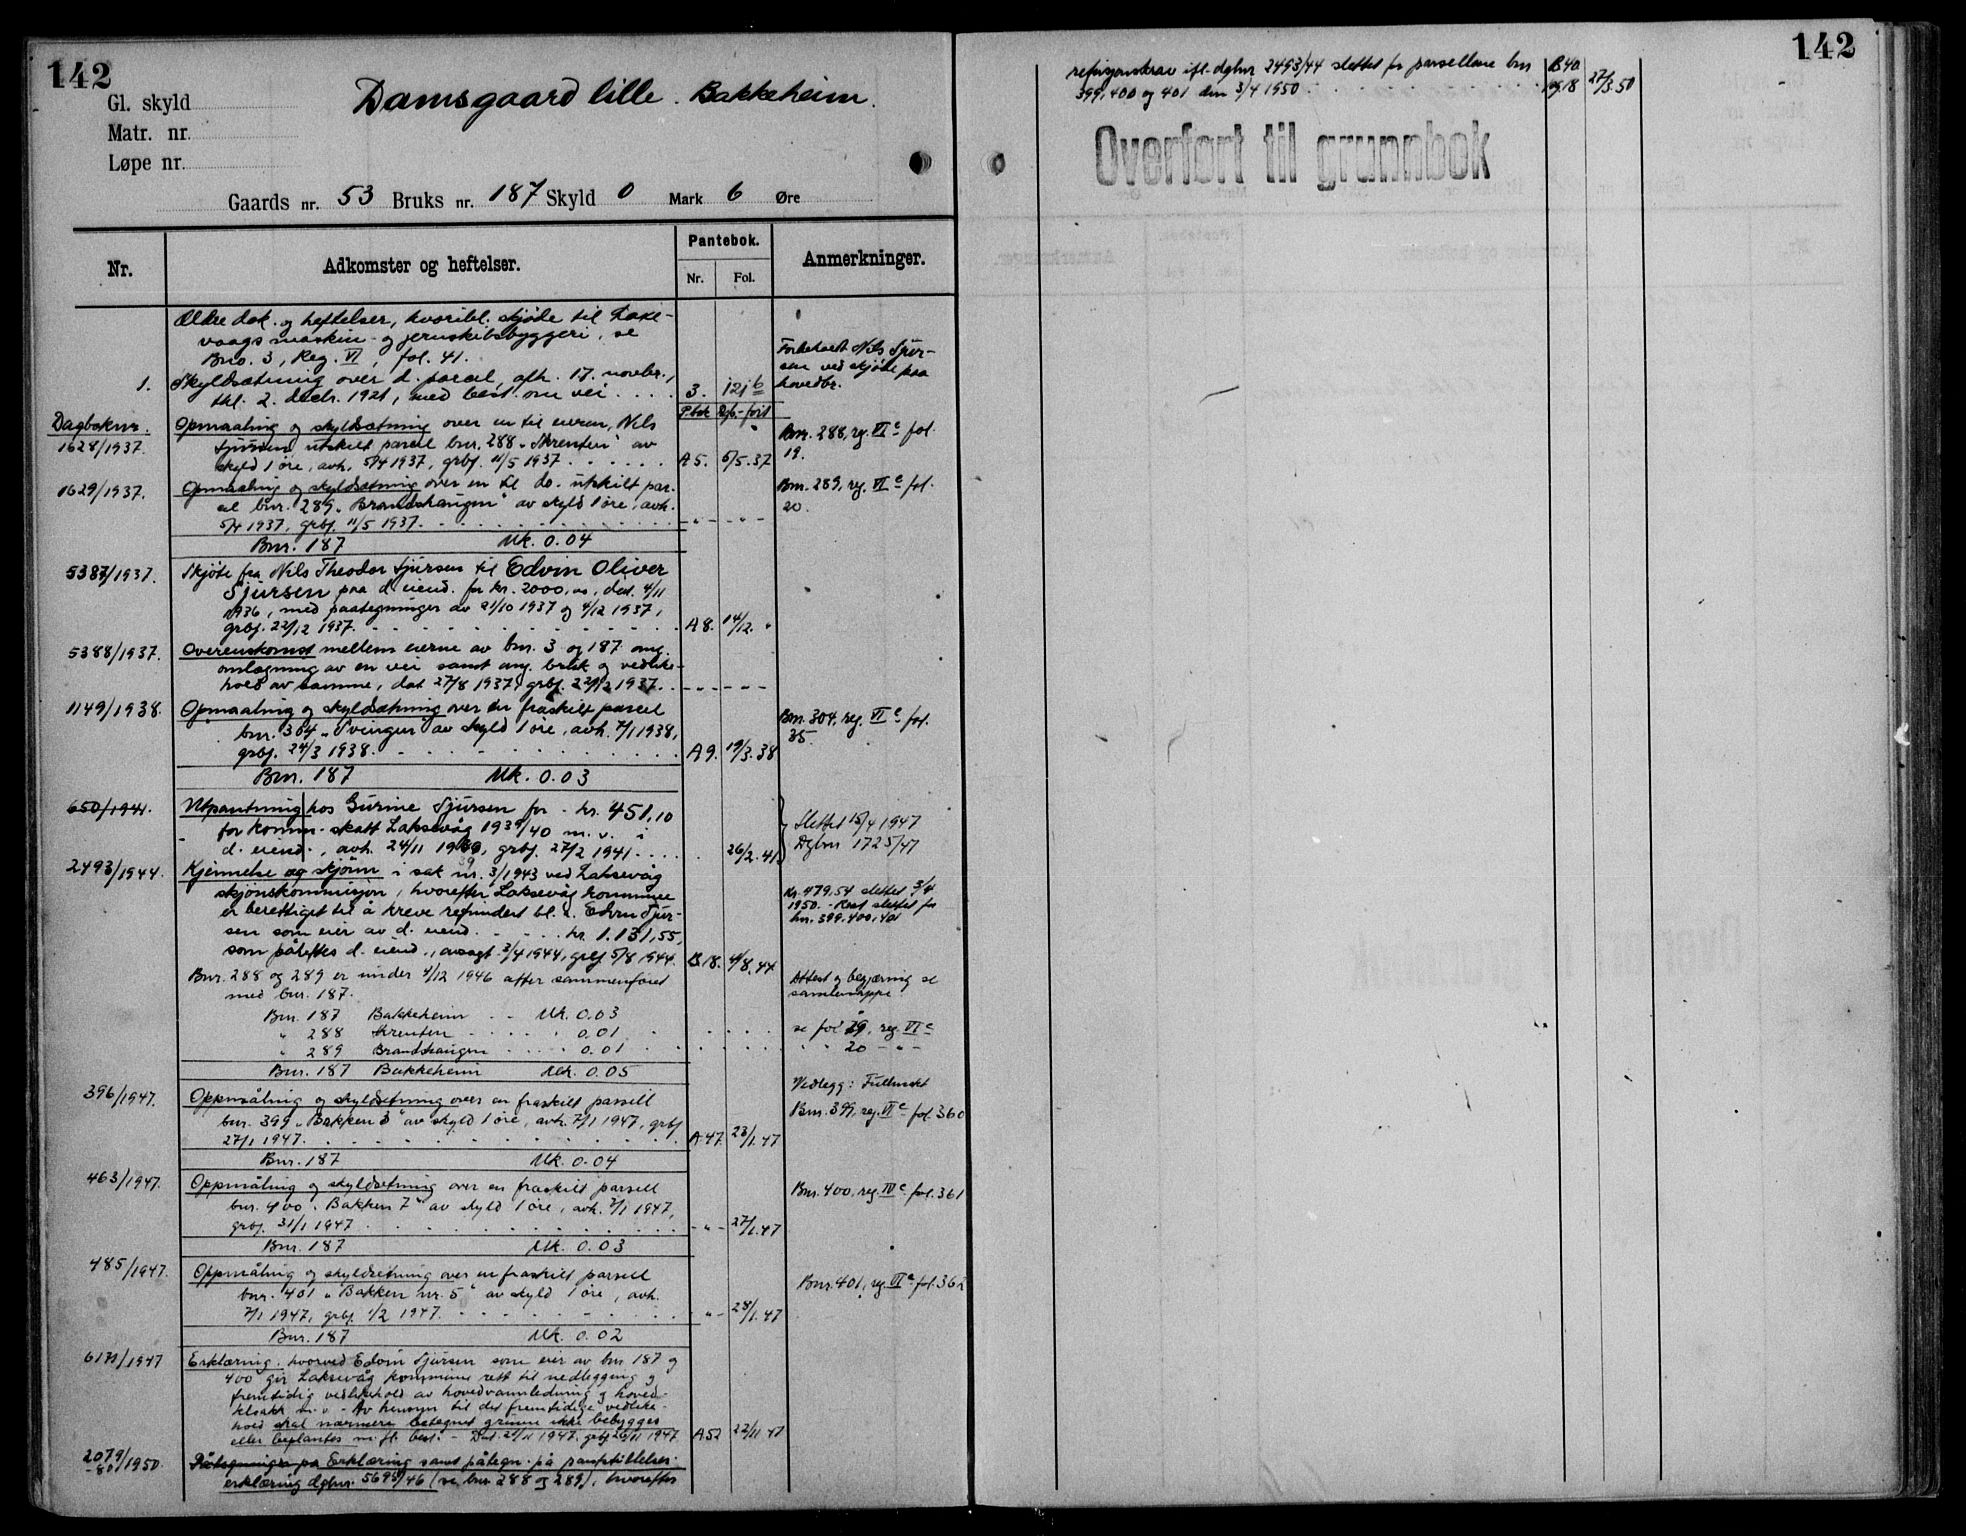 142
Gl. skyld
Damsgaard lille. Bakkeheim.
Matr. nr.
Løpe nr.
Gaards nr. 53 Bruks nr. 187 Skyld 0 Mark 6 Øre
Nr.
Adkomster og heftelser.
Pantebok.
Nr. Fol.
Anmerkninger.
Ældre dok. og heftelser, hvoribl. skjøde til Laxe-
vaags maskin- og jernskibsbyggeri, se
Bno. 3, Reg. VI, fol. 41.
1. Skyldsætning over d. parcel, afh. 17. novbr.,
thl. 2. decbr. 1921, med best. om vei . . . . 3. 121b
Forbeholdt Nils Sjur-
sen ved skjøde paa
hovedbr.
P.bok Dgb.-ført
Dagboknr.
1628/1937. Opmaaling og skyldsætning over en til eieren, Nils
Sjursen utskilt parcel bnr. 288 "Skrenten" av
skyld 1 øre, avh. 5/4 1937, grbf. 11/5 1937 . . . . . . A 5. 5/5.37
Bnr. 288, reg. VIc fol.
19.
1629/1937. Opmaaling og skyldsætning over en til do. utskilt par-
cel bnr. 289 "Brandshaugen" av skyld 1 øre, avh.
5/4 1937, grbf. 11/5 1937. - " - - " -
Bnr. 289, reg. VIc fol.
20.
Bnr. 187 Mk. 0.04
5387/1937. Skjøte fra Nils Theodor Sjursen til Edvin Oliver
Sjursen paa d. eiend. for kr. 2000,00, dat. 4/11
1936, med paategninger av 21/10 1937 og 4/12 1937,
grbf. 22/12 1937. A 8. 14/12. "
5388/1937. Overenskomst mellem eierne av bnr. 3 og 187 ang.
omlægning av en vei samt ang. bruk og vedlike-
hold av samme, dat 27/8 1937, grbf. 22/12 1937. . - - - - -
1149/1938. Opmaaling og skyldsætning over en fraskilt parcel
bnr. 304 "Svingen" av skyld 1 øre, avh. 7/1 1938,
grbf. 24/3 1938. A 9. 19/3.38
Bnr. 304, reg. VIc fol.
35.
Bnr. 187 Mk. 0.03
650/1941. Utpantning hos Gurine Sjursen for - kr. 451,10
for komm. skatt Laksevåg 1939/40 m. v. i
d. eiend., avh. 24/11 1939, grbf. 27/2 1941. . . . . 26/2.41
Slettet 15/4 1947
Dgbnr 1725/47
2493/1944. Kjennelse og skjønn i sak nr. 3/1943 ved Laksevåg
skjønskommisjon, hvorefter Laksevåg kommune
er berettiget til å kreve refundert bl. a. Edvin Sjur-
sen som eier av d. eiend. . . . . kr. 1.131,55,
som påheftes d. eiend., avsagt 3/4 1944, grbf 5/8 1944. B.18. 4/8.44
Kr. 479,54 slettet 3/4
1950. - Rest slettet for
bnr. 399, 400, 401
Bnr. 288 og 289 er under 4/12 1946 atter sammenføiet
med bnr. 187.
Attest og begjæring se
samlemappe.
Bnr. 187 Bakkeheim - - Mk. 0.03
" 288 Skrenten . . . . . 0.01 . . . . . se fol 19, reg. VIc
" 289 Brandshaugen . . . . . 0.01 . . . . . " " 20 - " -
Bnr. 187 Bakkeheim Mk. 0.05
396/1947. Oppmåling og skyldsetning over en fraskilt parsell
bnr. 399 "Bakken 3" av skyld 1 øre, avh. 7/1 1947, grbf
27/1 1947. A.47. 23/1.47
Vedlegg: Fullmakt
Bnr. 399, reg. VIc fol. 360
Bnr. 187 Mk. 0.04
463/1947. Oppmåling og skyldsetning over en fraskilt parsell
bnr. 400 "Bakken 7" av skyld 1 øre, avh. 7/1 1947,
grbf. 31/1 1947 - " - 27/1.47
Bnr. 400, reg. VIc fol. 361
Bnr. 187 Mk. 0.03
485/1947. Oppmåling og skyldsetning over en fraskilt parsell
bnr. 401 "Bakken nr. 5" av skyld 1 øre, avh.
7/1 1947, grbf. 1/2 1947. - " - 28/1.47
Bnr. 401, reg. VIc fol. 362
Bnr. 187 Mk. 0.02
6171/1947 Erklæring, hvorved Edvin Sjursen som eier av bnr 187 og
400 gir Laksevåg kommune rett til nedlegging og
fremtidig vedlikehold av hovedvannledning og hoved-
kloakk m. v. - Av hensyn til det fremtidige vedlike-
hold skal nærmere betegnet grunn ikke bebygges
eller beplantes m. fl. best. - Dat. 21/11 1947, grbf 26/11 1947 A.52 22/11 47
2079/-80/1950. Påtegninger på Erklæring samt påtegn. på
erklæring dgbnr. 5695/46 (se bnr 288 og 289), hvorefter
142
refusjonskrav ifl. dgbnr 2493/44 slettet for parsellene bnr
399, 400 og 401 den 3/4 1950 . . . . . B.40 og 18 27/3.50
Overført til grunnbok